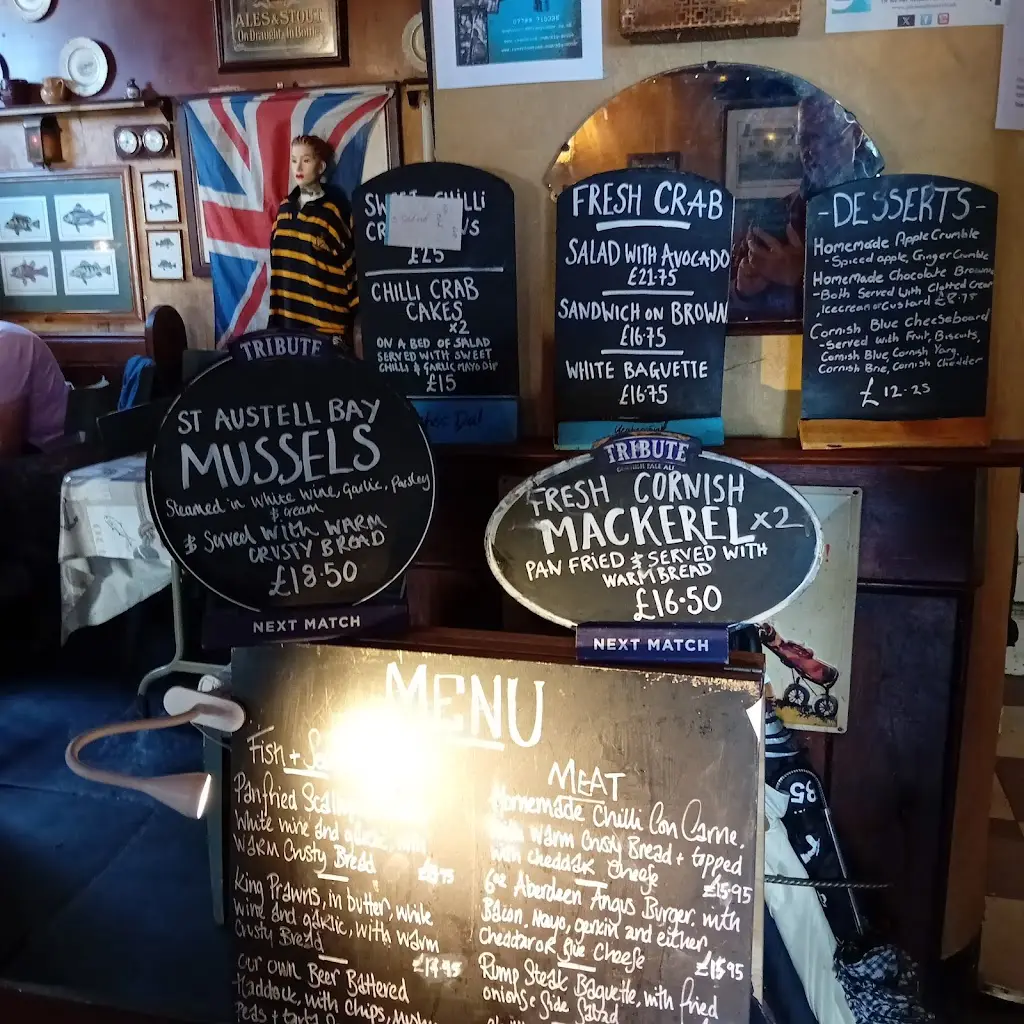 ALES & STOUT
On Draught, In Bottle
SWEET CHILLI
£25
CHILLI CRAB
CAKES
x2
ON A BED OF SALAD
SERVED WITH SWEET
CHILLI & GARLIC MAYO DIP
£15
FRESH CRAB
SALAD WITH AVOCADO
£21.75
SANDWICH ON BROWN
£16.75
WHITE BAGUETTE
£16.75
-DESSERTS-
Homemade Apple Crumble
- Spiced apple, Ginger Crumble
Homemade Chocolate Brownie
- Both Served With Clotted Cream
, Icecream or Custard
Cornish Blue Cheeseboard
- Served with Fruit, Biscuits,
Cornish Blue, Cornish Yarg,
Cornish Brie, Cornish Chedder
£12.25
TRIBUTE
ST AUSTELL BAY
MUSSELS
Steamed in White Wine, Garlic, Parsley
& Cream
& Served with WARM
CRUSTY BREAD
£18.50
NEXT MATCH
TRIBUTE
CORNISH PALE ALE
FRESH CORNISH
MACKEREL x2
PAN FRIED & SERVED WITH
WARM BREAD
£16.50
NEXT MATCH
MENU
Fish +
Panfried
White wine and
Warm Crusty Bread
King Prawns, in butter, white
wine and garlic, with warm
Crusty Bread
Our own Beer Battered
Haddock, with Chips,
Peas +
MEAT
Homemade Chilli Con Carne,
with warm Crusty Bread + topped
with cheddar cheese
£15.95
6oz Aberdeen Angus Burger, with
Bacon, Mayo, gerkin and either
Cheddar or Blue Cheese
£15.95
Rump Steak Baguette, with fried
onions & Side Salad
35